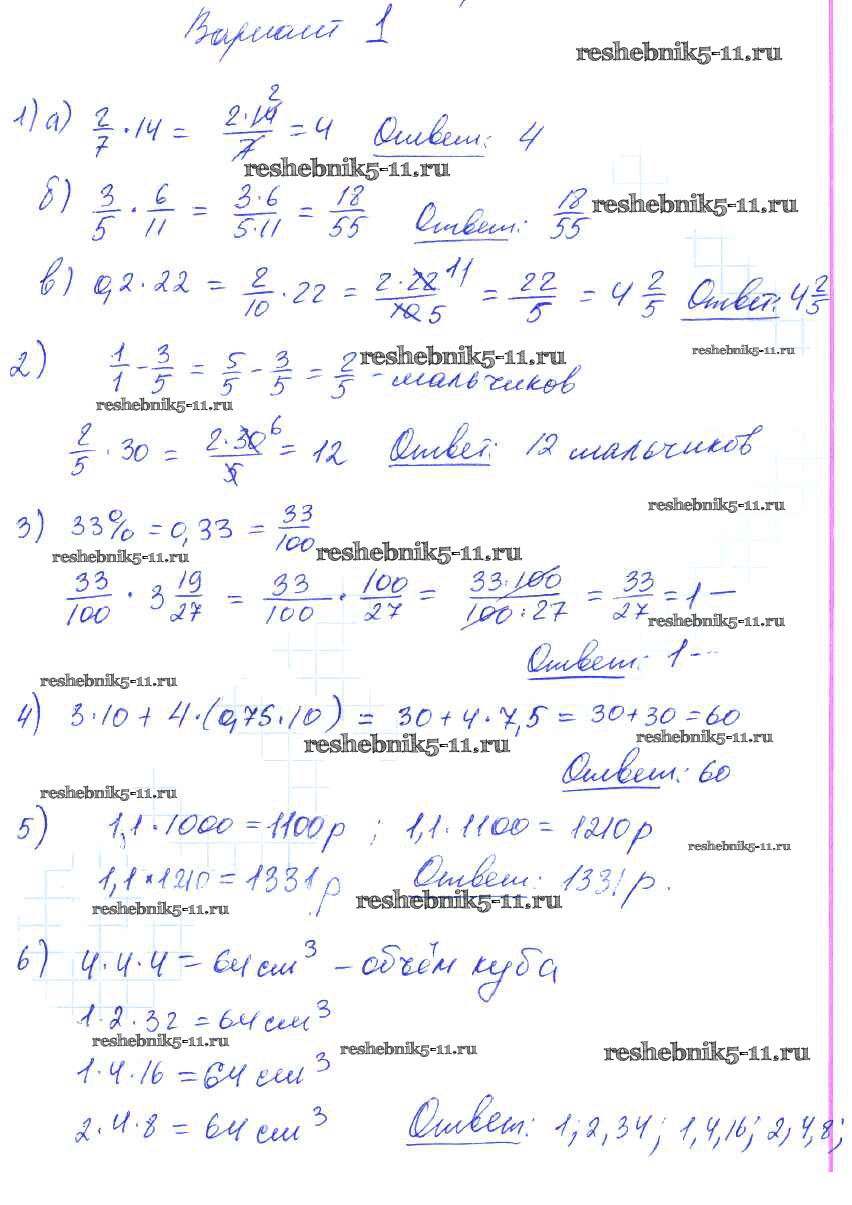 Вариант 1
reshebnik5-11.ru
1) а) 2/7 · 14 = 2·14/7 2 = 4 Ответ: 4
reshebnik5-11.ru
б) 3/5 · 6/11 = 3·6/5·11 = 18/55 Ответ: 18/55 reshebnik5-11.ru
в) 0,2 · 22 = 2/10 · 22 = 2·22 11/10 5 = 22/5 = 4 2/5 Ответ: 4 2/5
reshebnik5-11.ru reshebnik5-11.ru
2) 1/1 - 3/5 = 5/5 - 3/5 = 2/5 - мальчиков
reshebnik5-11.ru
2/5 · 30 = 2·30 6/5 = 12 Ответ: 12 мальчиков
reshebnik5-11.ru
3) 33% = 0,33 = 33/100
reshebnik5-11.ru reshebnik5-11.ru
33/100 · 3 19/27 = 33/100 · 100/27 = 33·100/100·27 = 33/27 = 1 —
reshebnik5-11.ru
Ответ: 1 --
reshebnik5-11.ru
4) 3·10 + 4·(0,75·10) = 30 + 4·7,5 = 30 + 30 = 60
reshebnik5-11.ru reshebnik5-11.ru
Ответ: 60
reshebnik5-11.ru
5) 1,1·1000 = 1100р ; 1,1·1100 = 1210р
reshebnik5-11.ru
1,1·1210 = 1331р Ответ: 1331р.
reshebnik5-11.ru reshebnik5-11.ru
6) 4·4·4 = 64 см³ - объём куба
1·2·32 = 64 см³
reshebnik5-11.ru reshebnik5-11.ru reshebnik5-11.ru
1·4·16 = 64 см³
2·4·8 = 64 см³ Ответ: 1;2,34; 1,4,16; 2,4,8;